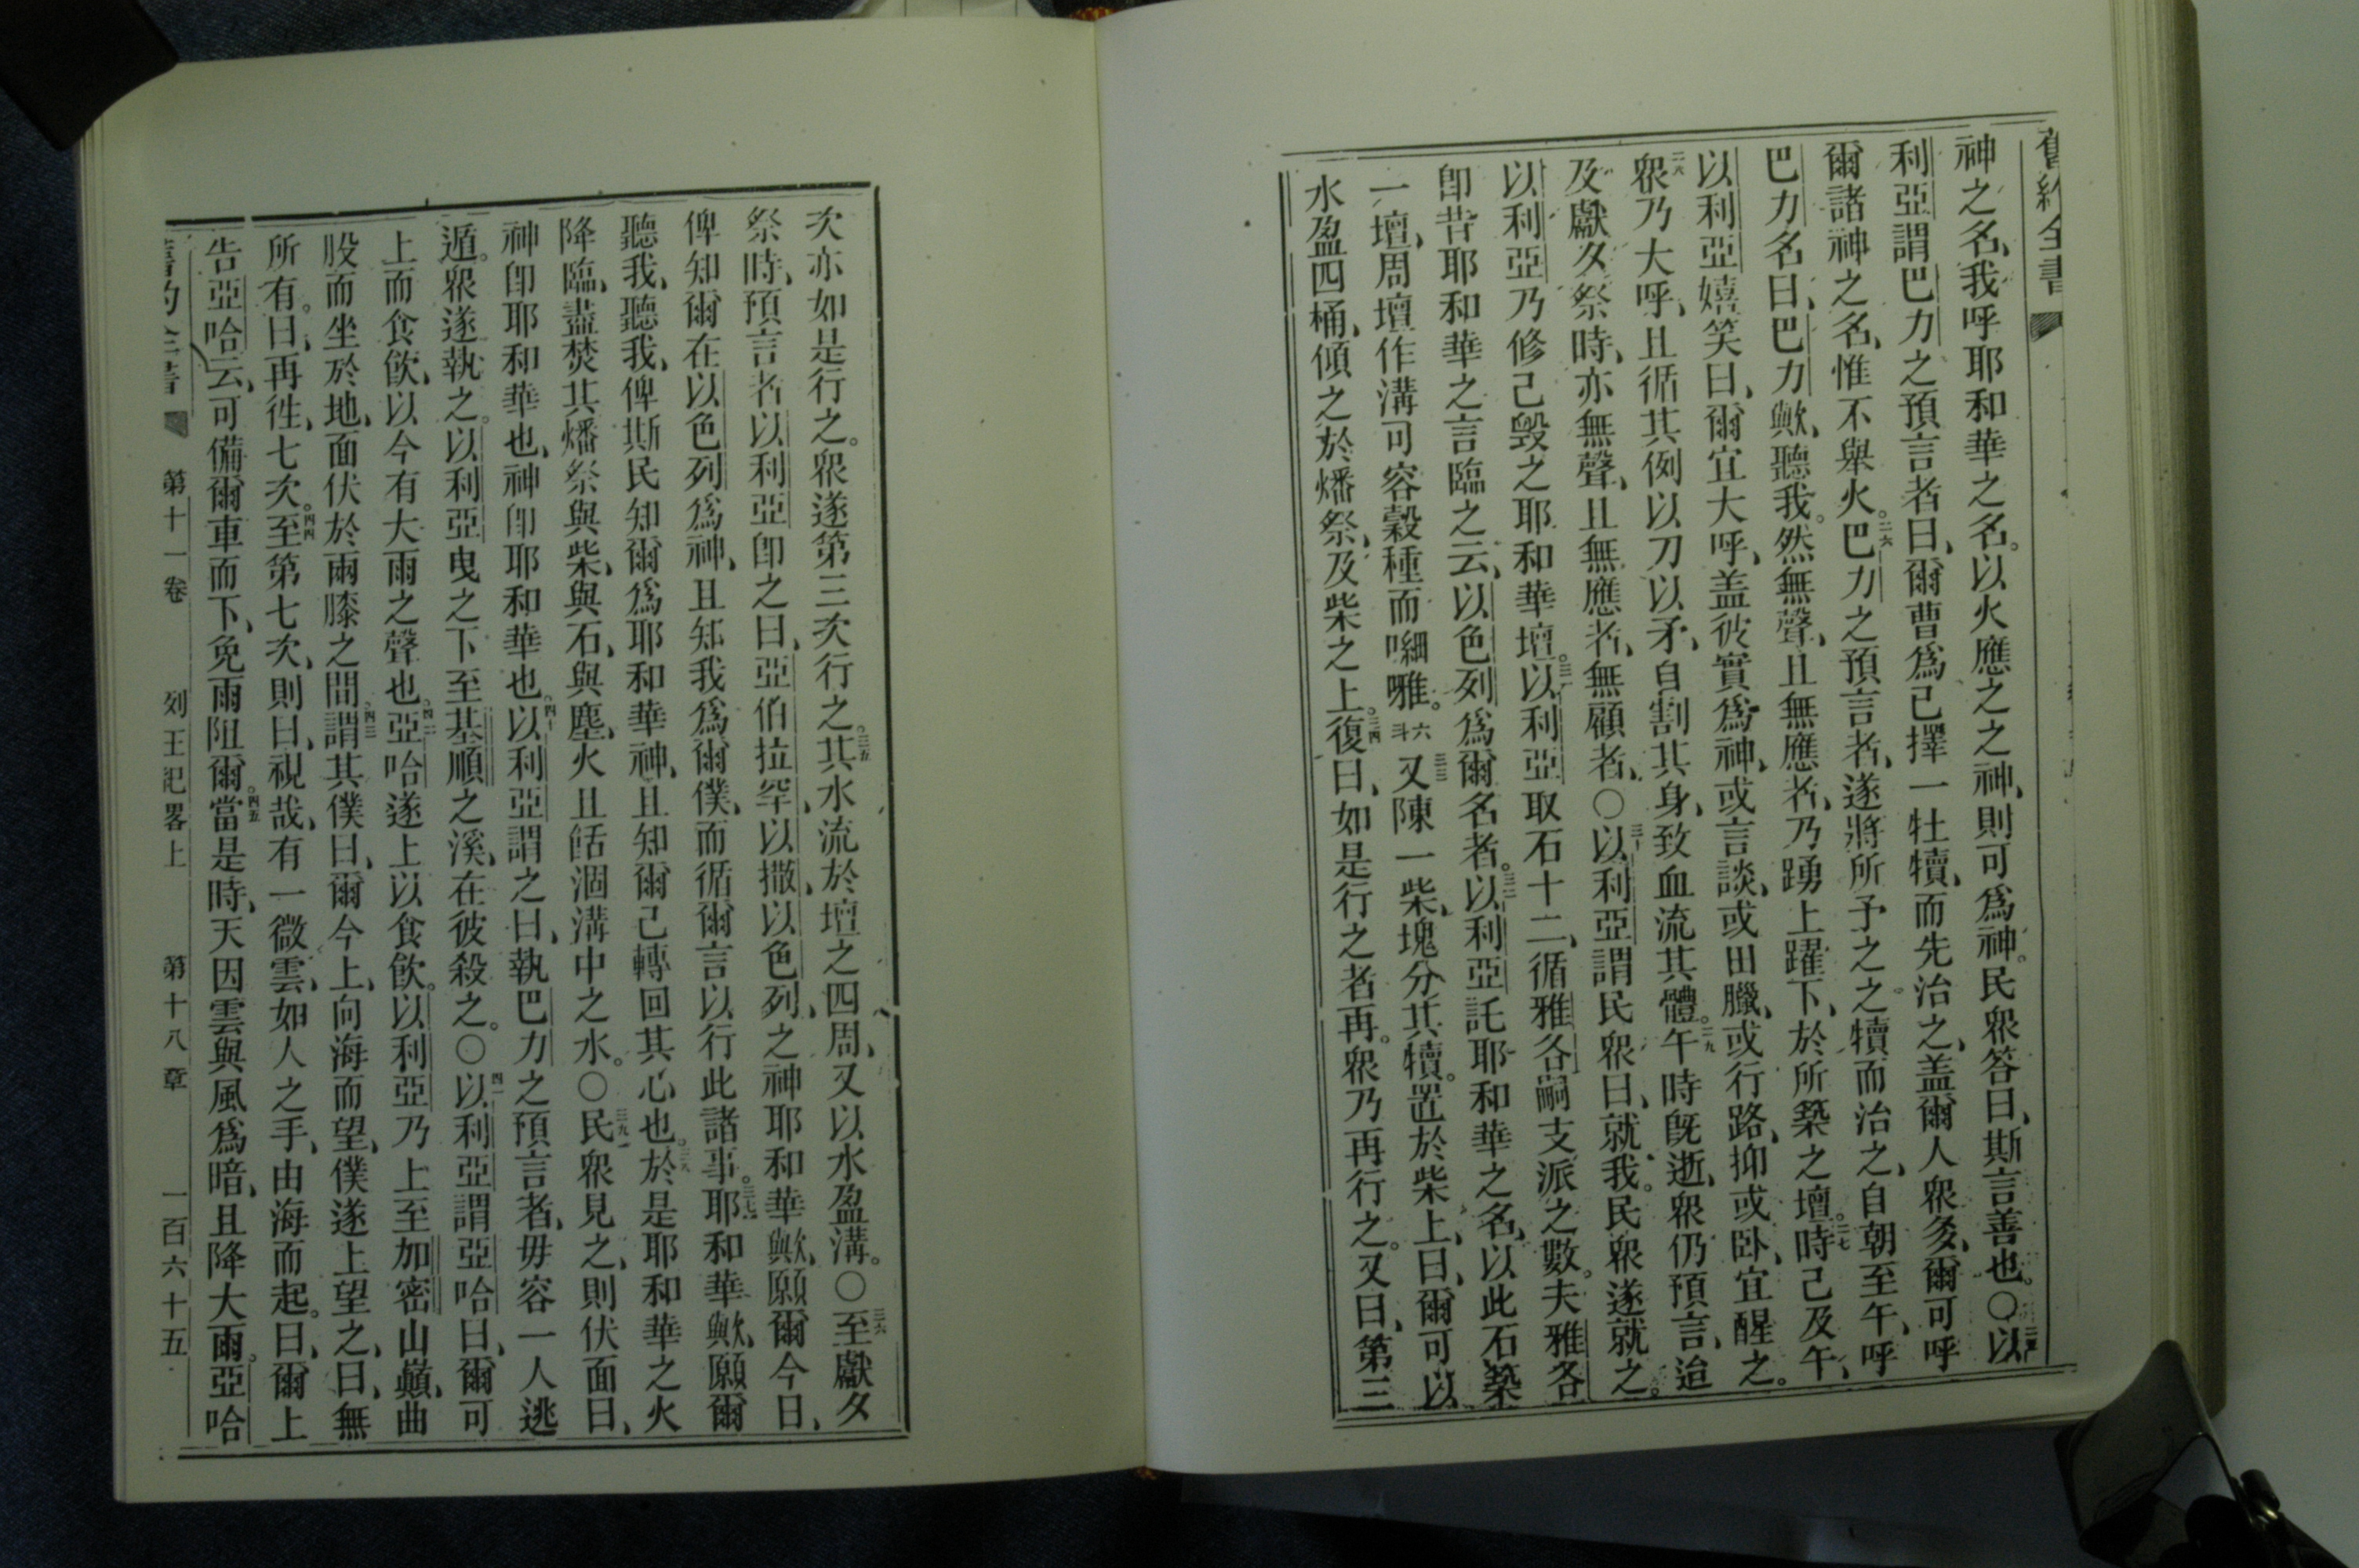 舊約全書
神之名、我呼耶和華之名。以火應之之神、則可爲神。民衆答曰、斯言善也。○以
利亞謂巴力之預言者曰、爾曹爲己擇一牡犢、而先治之、盖爾人衆多、爾可呼
爾諸神之名、惟不舉火。二六巴力之預言者、遂將所予之之犢而治之、自朝至午、呼
巴力名曰、巴力歟、聽我。然無聲、且無應者、乃踴上躍下、於所築之壇。二七時己及午、
以利亞嬉笑曰、爾宜大呼、盖彼實爲神、或言談、或田臘、或行路、抑或卧、宜醒之。
二八衆乃大呼、且循其例以刀以矛、自割其身、致血流其體。二九午時旣逝、衆仍預言、迨
及獻夕祭時、亦無聲、且無應者、無顧者、○三十以利亞謂民衆曰、就我。民衆遂就之。
以利亞乃修己毁之耶和華壇。三一以利亞取石十二、循雅各嗣支派之數。夫雅各
卽昔耶和華之言臨之云、以色列爲爾名者。三二以利亞託耶和華之名、以此石築
一壇、周壇作溝可容穀種而㘚㗒。六斗三三又陳一柴、塊分其犢。置於柴上、曰、爾可以
水盈四桶、傾之於燔祭、及柴之上。三四復曰、如是行之者再。衆乃再行之。又曰、第三
次亦如是行之。衆遂第三次行之。三五其水流於壇之四周、又以水盈溝。○三六至獻夕
祭時、預言者以利亞卽之曰、亞伯拉罕、以撒、以色列、之神耶和華歟、願爾今日、
俾知爾在以色列爲神、且知我爲爾僕、而循爾言以行此諸事。三七耶和華歟、願爾
聽我、聽我、俾斯民知爾爲耶和華神、且知爾己轉回其心也。三八於是耶和華之火
降臨、盡焚其燔祭與柴、與石、與塵、火且餂涸溝中之水。○三九民衆見之、則伏面曰、
神卽耶和華也、神卽耶和華也。四十以利亞謂之曰、執巴力之預言者、毋容一人逃
遁。衆遂執之。以利亞曳之下至基順之溪、在彼殺之。○四一以利亞謂亞哈曰、爾可
上而食飮、以今有大雨之聲也。四二亞哈遂上以食飮。以利亞乃上至加密山巓、曲
股而坐於地、面伏於兩膝之間。四三謂其僕曰、爾今上、向海而望、僕遂上望之、曰、無
所有。曰、再徃、七次。四四至第七次、則曰、視哉、有一微雲、如人之手、由海而起。曰、爾上
告亞哈云、可備爾車而下、免雨阻爾。四五當是時、天因雲與風爲暗、且降大雨。亞哈
舊約全書 第十一卷 列王紀畧上 第十八章 一百六十五